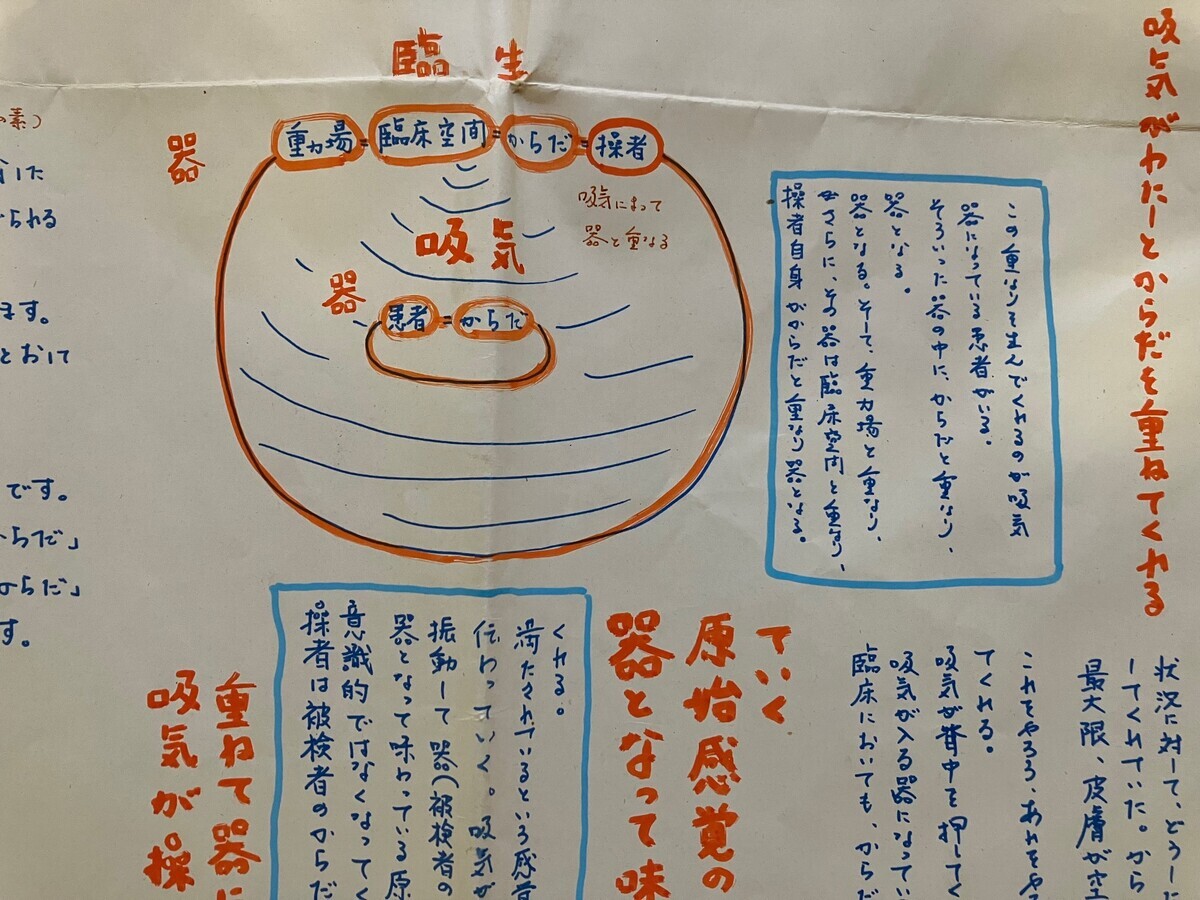 吸気がわたしとからだを重ねてくれる
臨生
重力場=臨床空間=からだ=操者
器
吸気によって
器と重なる
吸気
器
患者=からだ
この重なりを生んでくれるのが吸気
器になっている患者がいる。
そういった器の中に、からだと重なり、
器となる。
器となる。そして、重力場と重なり、
さらに、その器は臨床空間と重なり、
操者自身がからだと重なり器となる。
の素)
した
られる
ます。
とおして
です。
からだ」
からだ」
す。
状況に対して、どうした
してくれていた。から
最大限、皮膚が空
これをやろう、あれをや
てくれる。
吸気が背中を押してく
吸気が入る器になってい
臨床においても、からだ
ていく
原始感覚の
器となって味
くれる。
満たされているという感覚
伝わっていく。吸気が
振動して器(被検者の
器となって味わっている原
意識的ではなくなってく
操者は被検者のからだ
重ねて器に
吸気が操